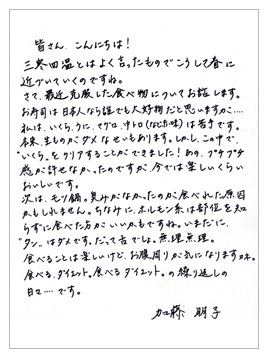 皆さん、こんにちは!
三寒四温とはよく言ったものでこうして春に
近づいていくのですね。
さて、最近克服した食べ物についてお話します。
お寿司は日本人なら誰でも大好物だと思いますが‥‥
私は、いくら、うに、マグロ、中トロ(など赤味)は苦手です。
本来、生ものがダメなせいもあります。しかし、この中で、
"いくら"をクリアすることができました!あの、プチプチ
感が許せなかったのですが、今では楽しくらい
おいしいです。
次は、モツ鍋。臭みがなかったのが食べれた原因
かもしれません。ちなみに、ホルモン系は部位を知
らずに食べた方がいいかもですね。いまだに、
"タン"はダメです。だって舌でしょ。無理無理。
食べることは楽しいけど、お腹周りが気になりますヨネ。
食べる、ダイエット。食べるダイエット。の繰り返しの
日々‥‥です。
加藤 朋子